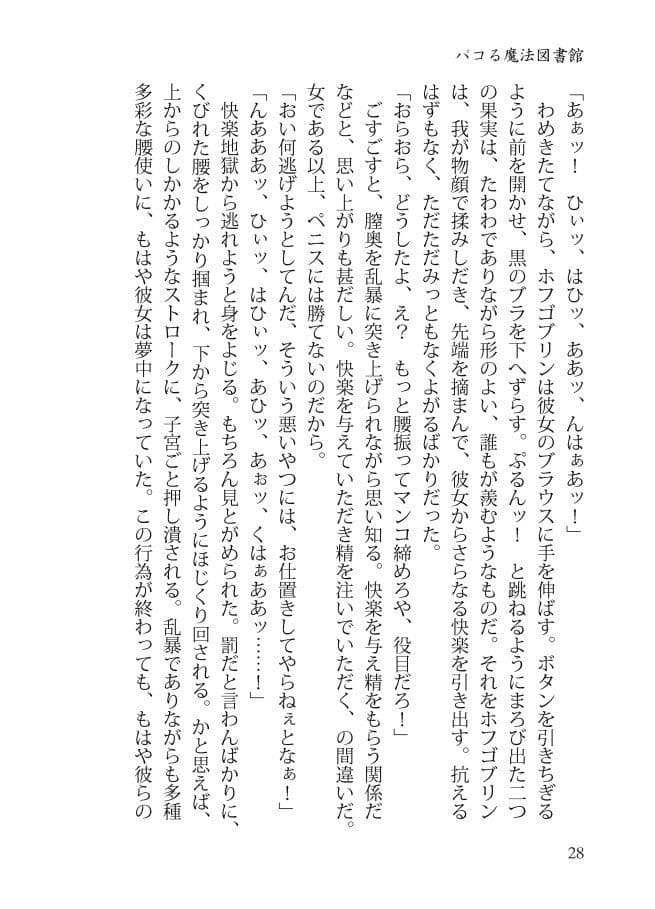 パコる魔法図書館
「あぁッ！　ひぃッ、はひッ、ああッ、んはぁあッ！」
　わめきたてながら、ホフゴブリンは彼女のブラウスに手を伸ばす。ボタンを引きちぎる
ように前を開かせ、黒のブラを下へずらす。ぷるんッ！　と跳ねるようにまろび出た二つ
の果実は、たわわでありながら形のよい、誰もが羨むようなものだ。それをホフゴブリン
は、我が物顔で揉みしだき、先端を摘まんで、彼女からさらなる快楽を引き出す。抗える
はずもなく、ただただみっともなくよがるばかりだった。
「おらおら、どうしたよ、え？　もっと腰振ってマンコ締めろや、役目だろ！」
　ごすごすと、膣奥を乱暴に突き上げられながら思い知る。快楽を与え精をもらう関係だ
などと、思い上がりも甚だしい。快楽を与えていただき精を注いでいただく、の間違いだ。
女である以上、ペニスには勝てないのだから。
「おい何逃げようとしてんだ、そういう悪いやつには、お仕置きしてやらねぇとなぁ！」
「んあああッ、ひぃッ、はひぃッ、あひッ、あぉッ、くはぁああッ……！」
　快楽地獄から逃れようと身をよじる。もちろん見とがめられた。罰だと言わんばかりに、
くびれた腰をしっかり掴まれ、下から突き上げるようにほじくり回される。かと思えば、
上からのしかかるようなストロークに、子宮ごと押し潰される。乱暴でありながらも多種
多彩な腰使いに、もはや彼女は夢中になっていた。この行為が終わっても、もはや彼らの
28